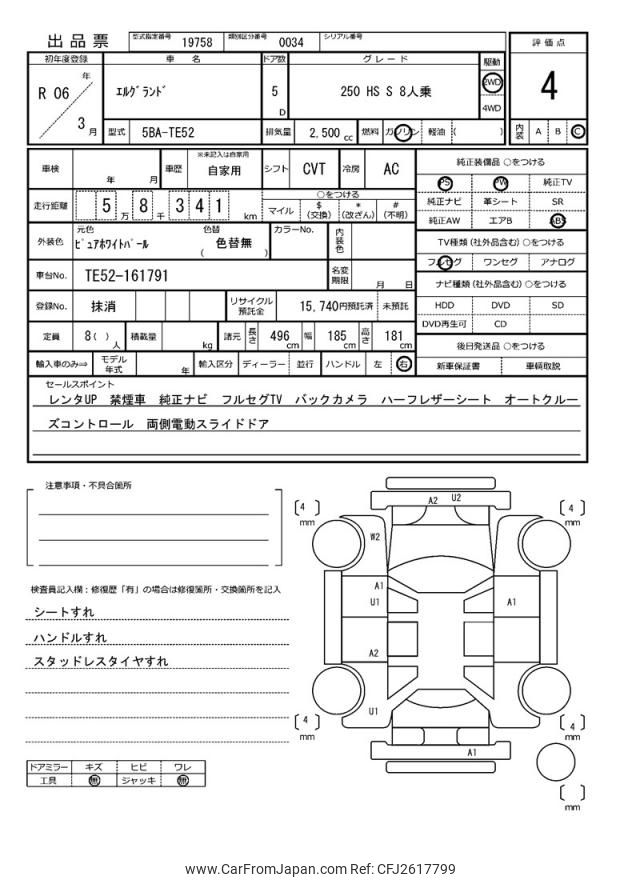 出品票 型式指定番号 19758 類別区分番号 0034 シリアル番号
初年度登録 車名 ドア数 グレード 駆動 評価点
R 06 年 3 月 エルグランド 5 D 250 HS S 8人乗 2WD 4WD 4
型式 5BA-TE52 排気量 2,500 cc 燃料 ガソリン 軽油 ( ) 内装 A B C
車検 年 月 車歴 ※未記入は自家用 自家用 シフト CVT 冷房 AC
走行距離 5 万 8 千 3 4 1 km ○をつける マイル $ (交換) * (改ざん) # (不明)
外装色 元色 ピュアホワイトパール 色替 ( 色替無 ) カラーNo. 内装色
車台No. TE52-161791 名変期限 月 日
登録No. 抹消 リサイクル預託金 15,740円預託済 未預託
定員 8( ) 人 積載量 kg 諸元 長さ 496 cm 幅 185 cm 高さ 181 cm
輸入車のみ⇒ モデル年式 年 輸入区分 ディーラー 並行 ハンドル 左 右
純正装備品 ○をつける
PS PW 純正TV
純正ナビ 革シート SR
純正AW エアB ABS
TV種類 (社外品含む) ○をつける
フルセグ ワンセグ アナログ
ナビ種類 (社外品含む) ○をつける
HDD DVD SD
DVD再生可 CD
後日発送品 ○をつける
新車保証書 車輌取説
セールスポイント
レンタUP 禁煙車 純正ナビ フルセグTV バックカメラ ハーフレザーシート オートクルー
ズコントロール 両側電動スライドドア
注意事項・不具合箇所
検査員記入欄：修復歴「有」の場合は修復箇所・交換箇所を記入
シートすれ
ハンドルすれ
スタッドレスタイヤすれ
ドアミラー キズ ヒビ ワレ
工具 無 ジャッキ 無
A2 U2
[ 4 ] mm [ 4 ] mm
W2
A1
U1 A1
A2
U1
[ 4 ] mm [ 4 ] mm
A1
[ ] mm
www.CarFromJapan.com Ref: CFJ2617799